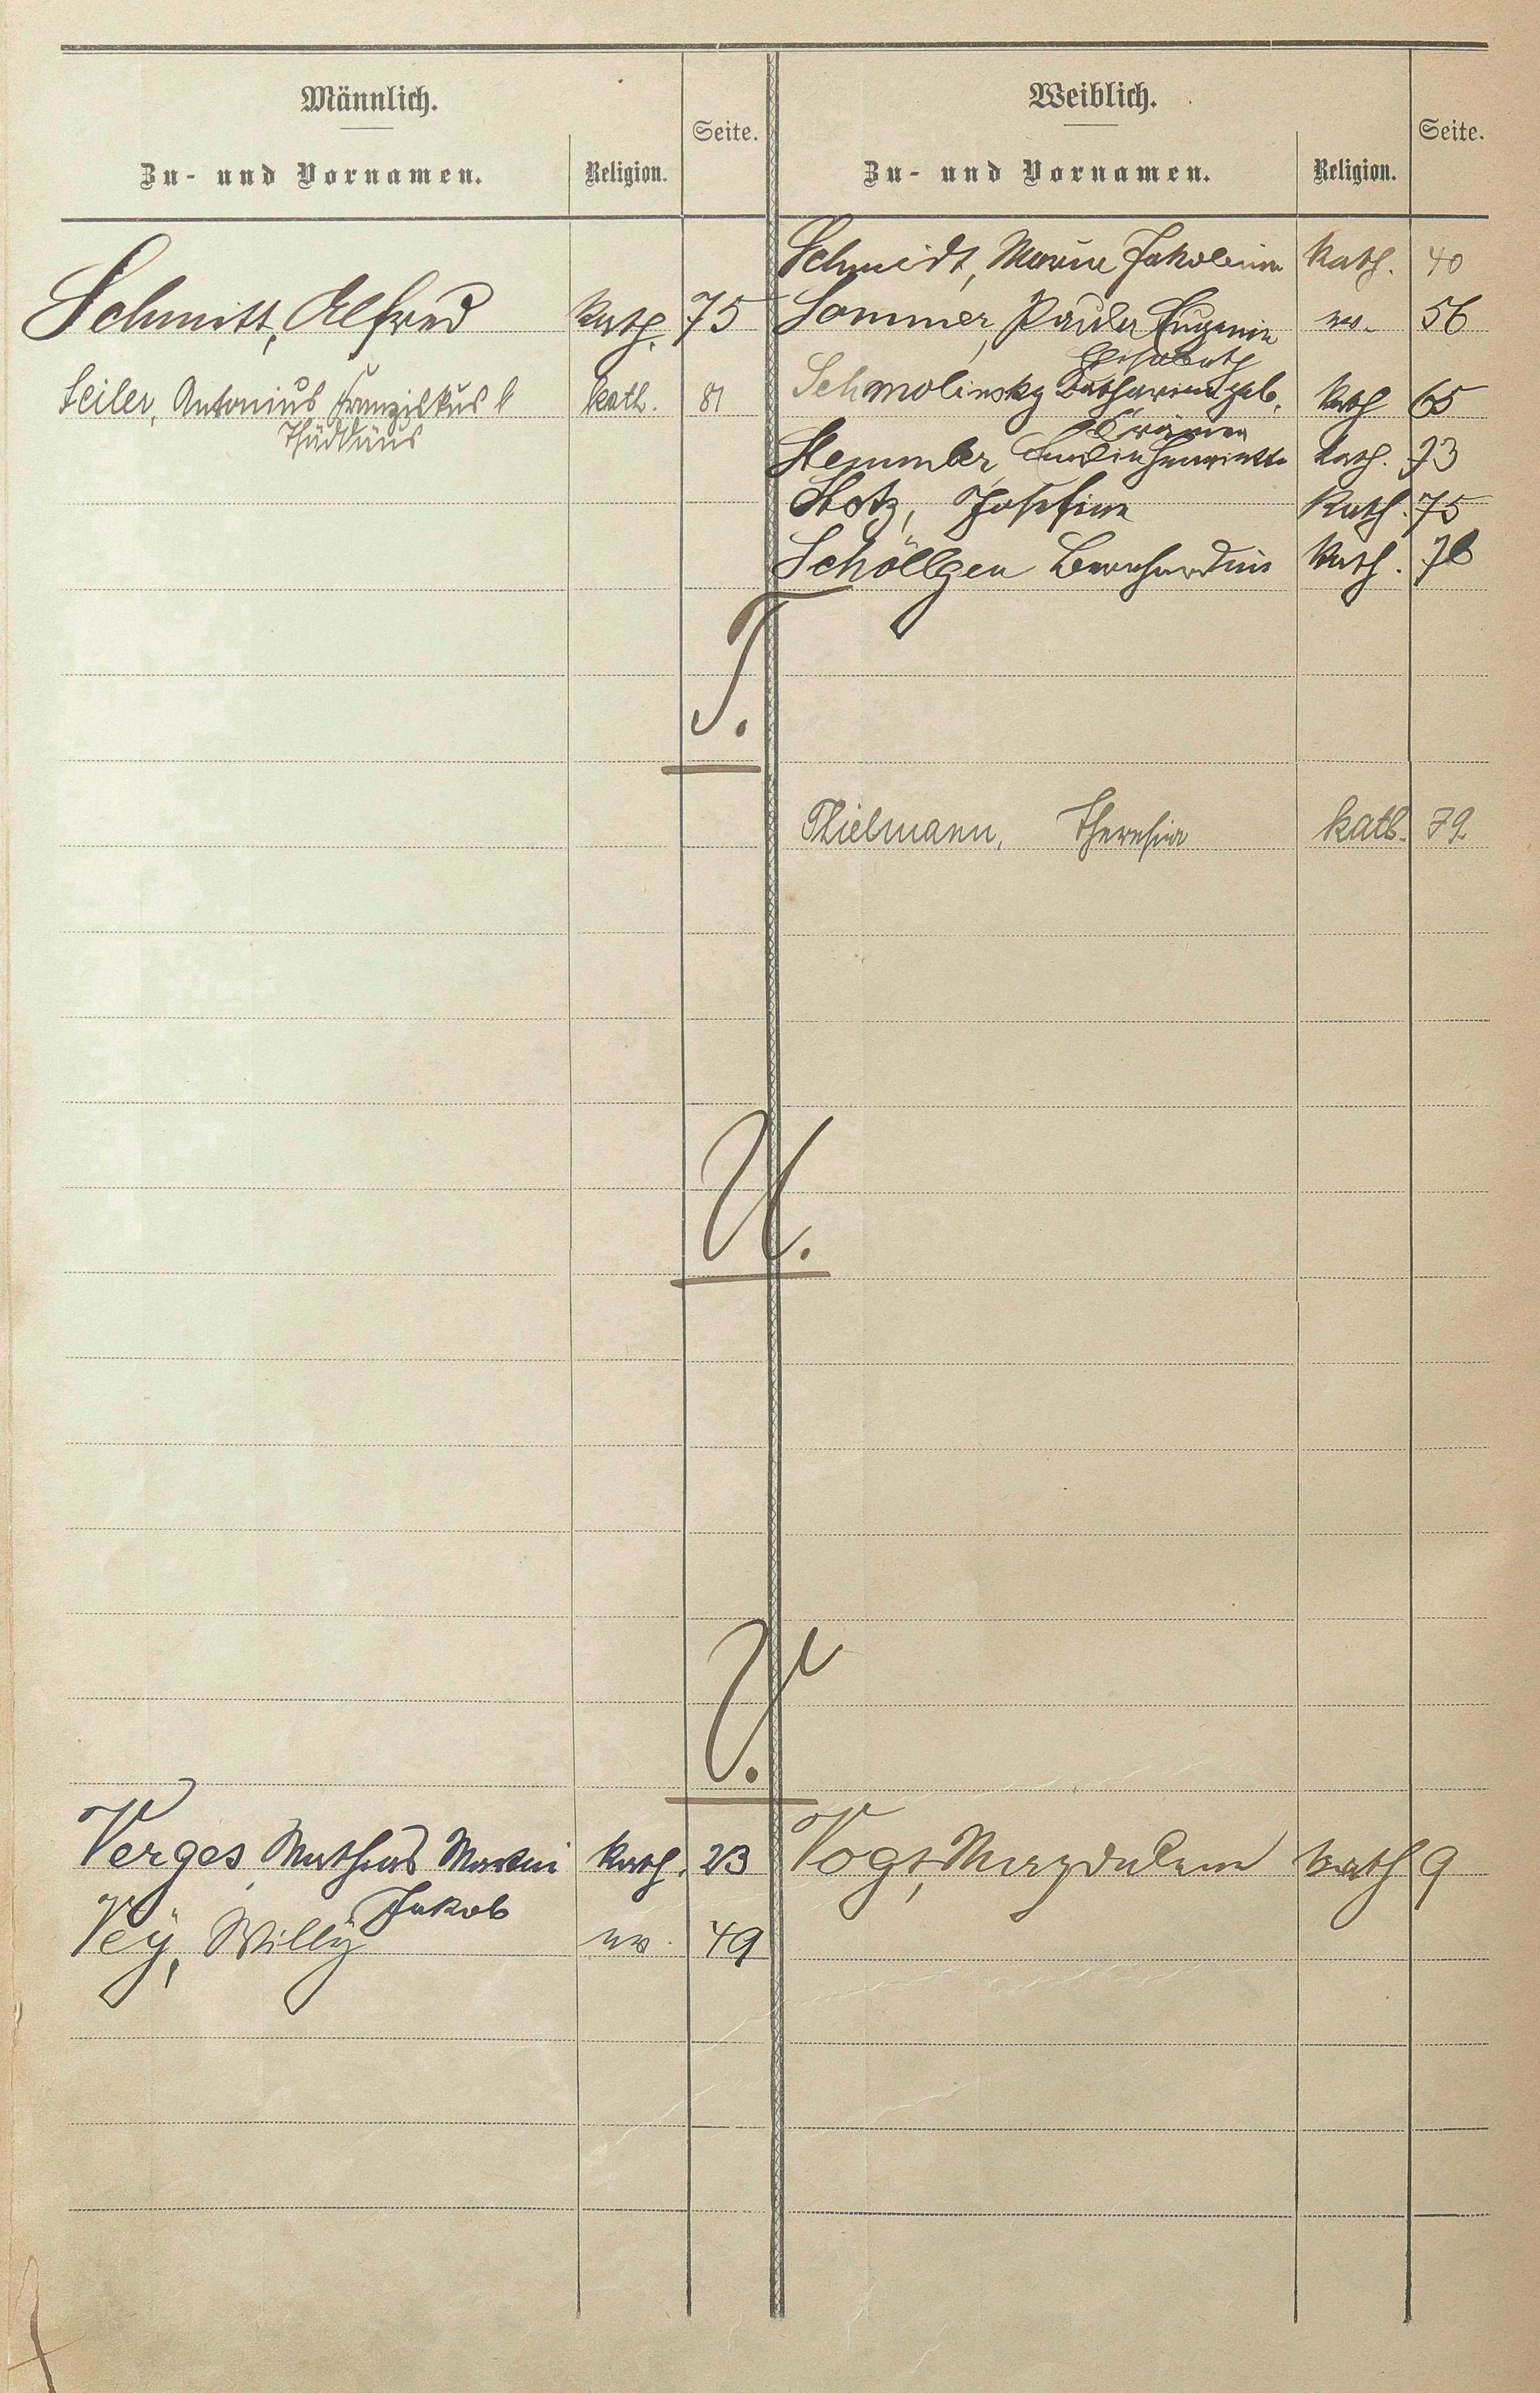 Männlich.
Zu- und Vornamen.
Religion.
Seite.
Weiblich.
Zu- und Vornamen.
Religion.
Seite.
Schmidt, Maria Jakobina Kath. 40
Schmitt, Alfred Kath. 75
Sommer, Paula Eugenie 56
Elisabeth
Seiler, Antonius Franziskus kath. 81
Thaddäus
Schmolinsky Katharina geb. Kath 65
Krämer
Stemmler, Henriette Kath. 73
Stotz, Josefine Kath. 75
Schöllgen Bernhardine Kath. 76
T.
Thielmann, Theresia kath. 79
U.
V.
Verges, Mathias Martin Kath. 23
Jakob
Vogt, Magdalena Kath 9
Vey, Willy 49